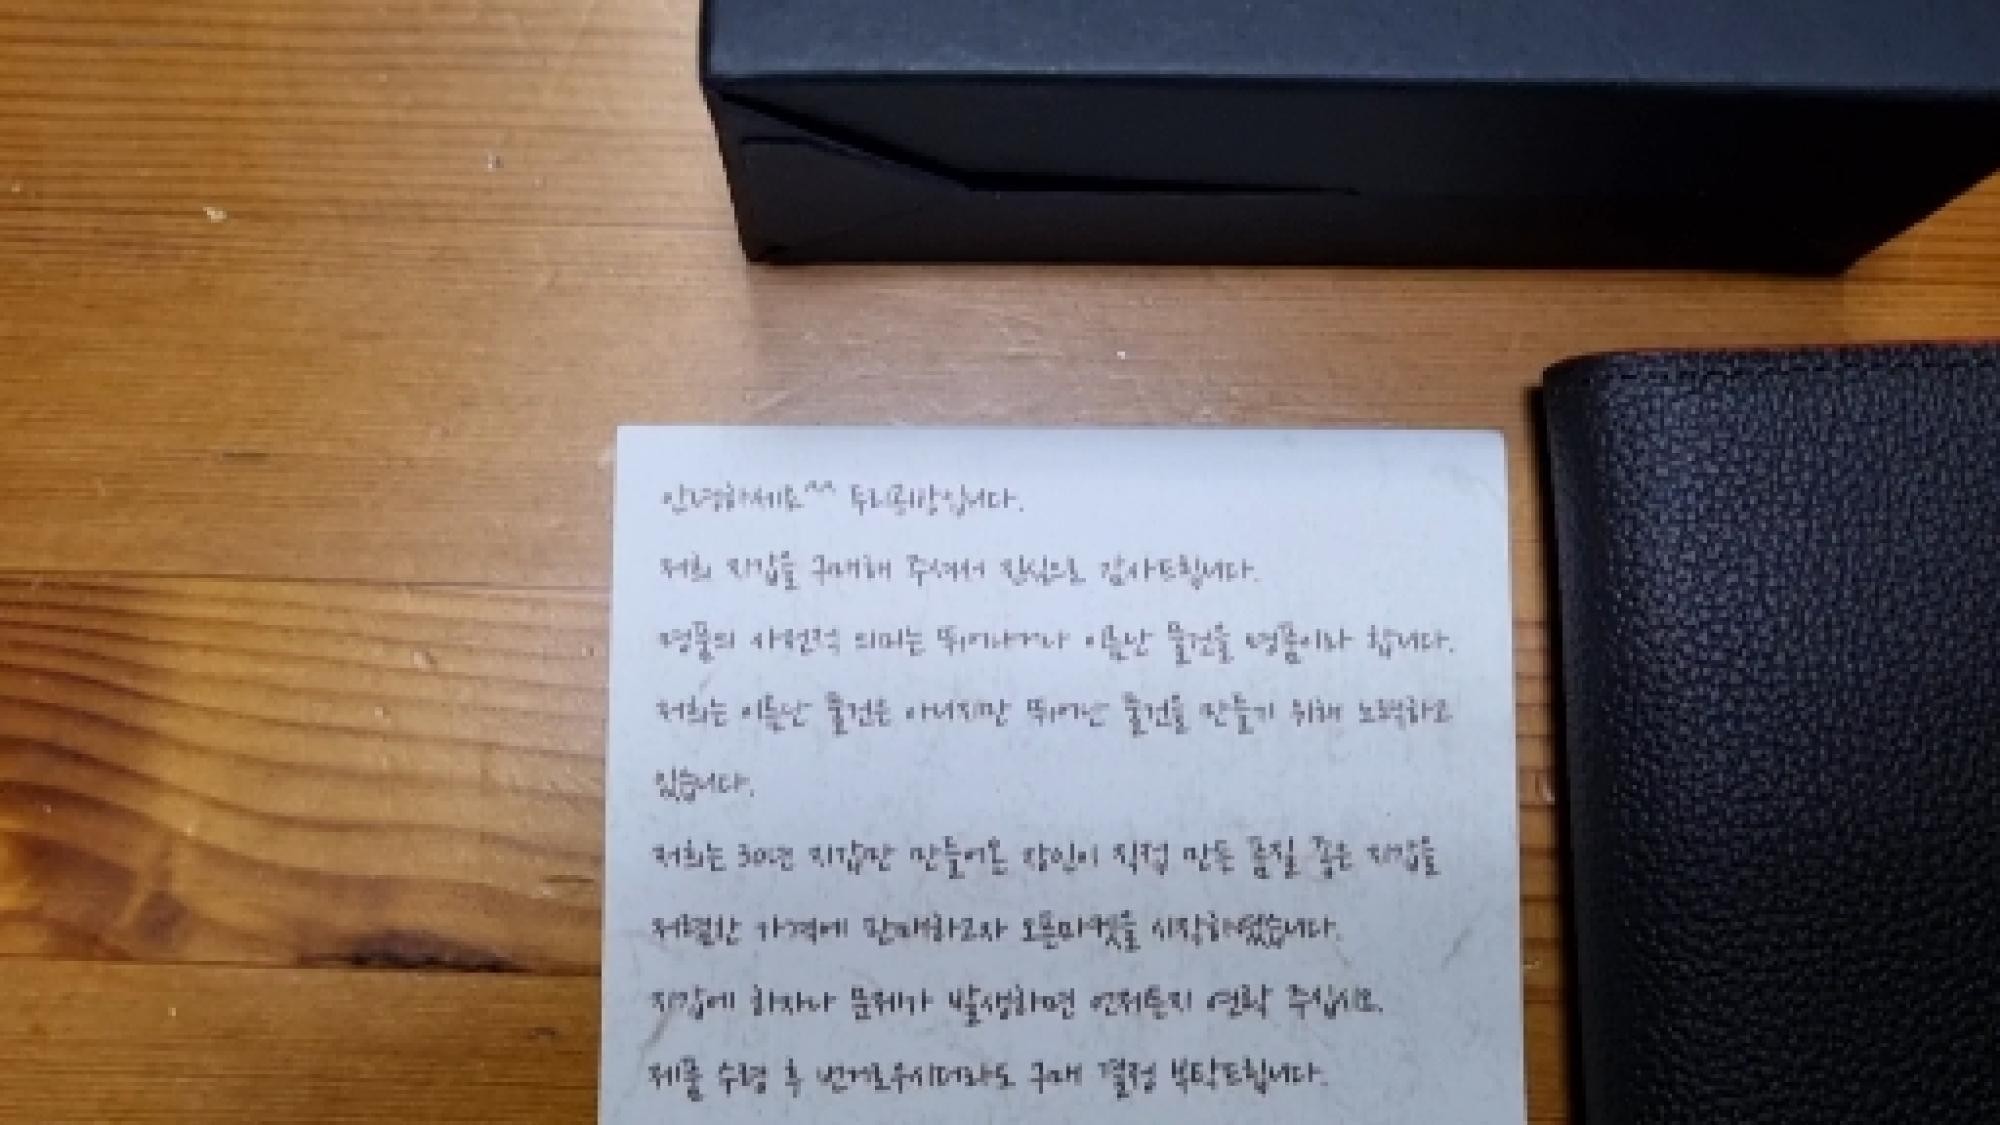 안녕하세요^^ 두리공방입니다.
저희 지갑을 구매해 주셔서 진심으로 감사드립니다.
명품의 사전적 의미는 뛰어나거나 이름난 물건을 명품이라 합니다.
저희는 이름난 물건은 아니지만 뛰어난 물건을 만들기 위해 노력하고
있습니다.
저희는 30년간 지갑만 만들어온 장인이 직접 만든 품질 좋은 지갑을
저렴한 가격에 판매하고자 오픈마켓을 시작하였습니다.
지갑에 하자나 문제가 발생하면 언제든지 연락 주십시요.
제품 수령 후 번거로우시더라도 구매 결정 부탁드립니다.